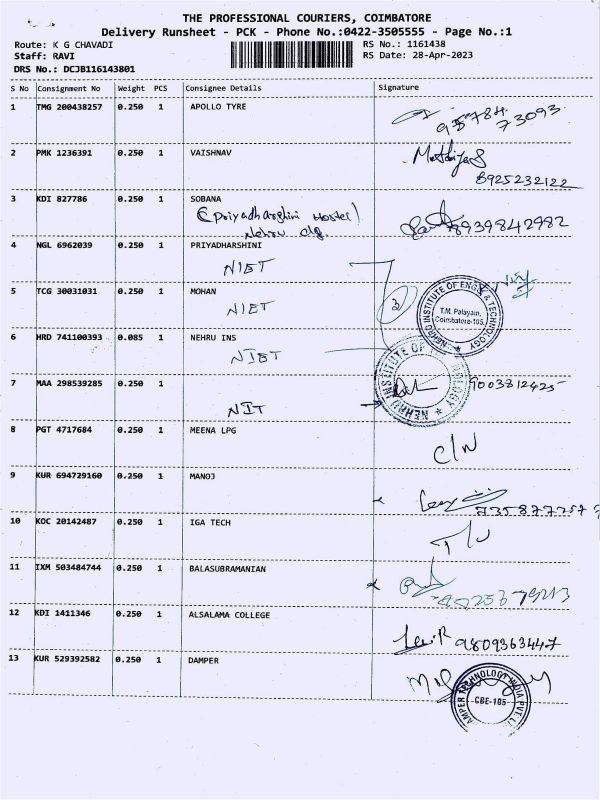 THE PROFESSIONAL COURIERS, COIMBATORE
Delivery Runsheet - PCK - Phone No.:0422-3505555 - Page No.:1
Route: K G CHAVADI RS No.: 1161438
Staff: RAVI RS Date: 28-Apr-2023
DRS No.: DCJB116143801
S No Consignment No Weight PCS Consignee Details Signature
1 TMG 200438257 0.250 1 APOLLO TYRE
95784 73093
2 PMK 1236391 0.250 1 VAISHNAV
8925232122
3 KDI 827786 0.250 1 SOBANA
(Priyadharghini Hostel)
Nehru clg. 8939842982
4 NGL 6962039 0.250 1 PRIYADHARSHINI
NIET
5 TCG 30031031 0.250 1 MOHAN
NIET
3
NEHRU INSTITUTE OF ENGG & TECHNOLOGY
T.M. Palayam,
Coimbatore-105.
6 HRD 741100393 0.085 1 NEHRU INS
NIET
NEHRU INSTITUTE OF TECHNOLOGY
7 MAA 298539285 0.250 1
9003812425
NIT
8 PGT 4717684 0.250 1 MEENA LPG
C/N
9 KUR 694729160 0.250 1 MANOJ
10 KOC 20142487 0.250 1 IGA TECH
11 IXM 503484744 0.250 1 BALASUBRAMANIAN
12 KDI 1411346 0.250 1 ALSALAMA COLLEGE
9809363447
13 KUR 529392582 0.250 1 DAMPER
AMPER TECHNOLOGY INDIA PVT. LT
CBE-105